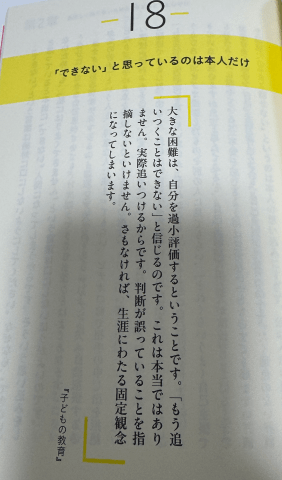 18
「できない」と思っているのは本人だけ
大きな困難は、自分を過小評価するということです。「もう追
いつくことはできない」と信じるのです。これは本当ではあり
ません。実際追いつけるからです。判断が誤っていることを指
摘しないといけません。さもなければ、生涯にわたる固定観念
になってしまいます。
『子どもの教育』